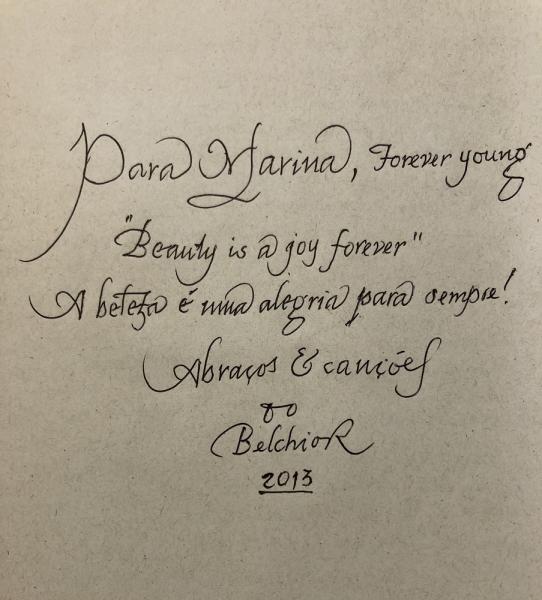 Para Marina, Forever young
"Beauty is a joy forever"
A beleza é uma alegria para sempre!
Abraços & canções
do
Belchior
2013